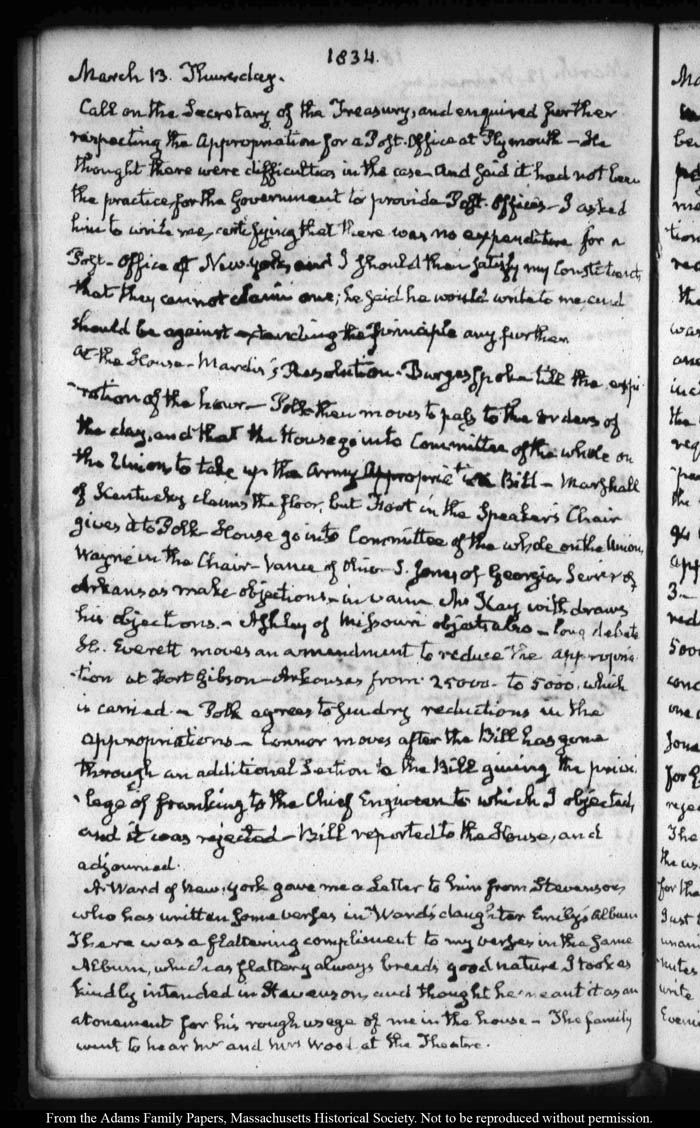 1834.
March 13. Thursday.
Call on the Secretary of the Treasury, and enquired further
respecting the Appropriation for a Post-Office at Plymouth — He
thought there were difficulties in the case and said it had not been
the practice, for the Government to provide Post-Offices — I asked
him to write me, certifying that there was no expenditure for a
Post-Office at New-York, and I should then satisfy my Constituents
that they cannot claim one; he said he would write to me, and
should be against extending the principle any further
At the House — Mardis's Resolution. Burges spoke till the expi-
-ration of the hour — Polk then moves to pass to the orders of
the day, and that the House go into Committee of the whole on
the Union, to take up the Army Appropriation Bill — Marshall
of Kentucky claims the floor, but Foot in the Speaker's Chair
gives it to Polk — House go into Committee of the whole on the Union,
Wayne in the Chair — Vance of Ohio S. Jones of Georgia Sevier of
Arkansas make objections — in vain Jno Kay withdraws
his objections. — Ashley of Missouri objects also — long debate
H. Everett moves an amendment to reduce the appropria-
-tion at Fort Gibson — Arkansas from 25000 to 5000, which
is carried — Polk agrees to sundry reductions in the
appropriations — Connor moves after the Bill has gone
through an additional Section to the Bill giving the privi-
-lege of franking to the Chief Engineer to which I objected,
and it was rejected — Bill reported to the House, and
adjourned.
A. Ward of New-York gave me a Letter to him from Stevenson,
who has written some verses in Ward's daughter Emily's Album
There was a flattering compliment to my verses in the same
Album, which as flattery always breeds good nature I took as
kindly intended in Stevenson, and thought he meant it as an
atonement for his rough usage of me in the house — The family
went to hear Mr and Mrs Wood at the Theatre.
From the Adams Family Papers, Massachusetts Historical Society. Not to be reproduced without permission.